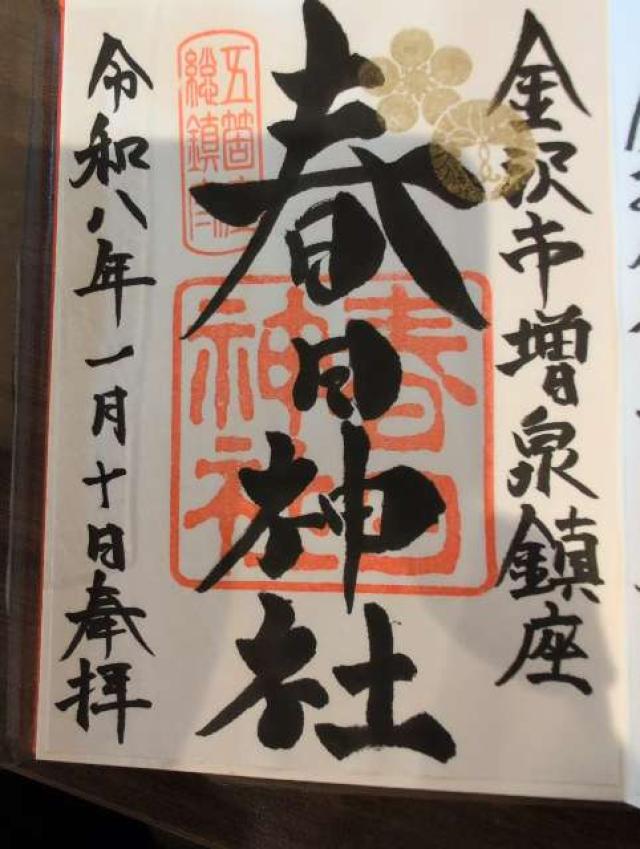 金沢市増泉鎮座
春日神社
春日神社
五箇庄
総鎮守
令和八年一月十日奉拝